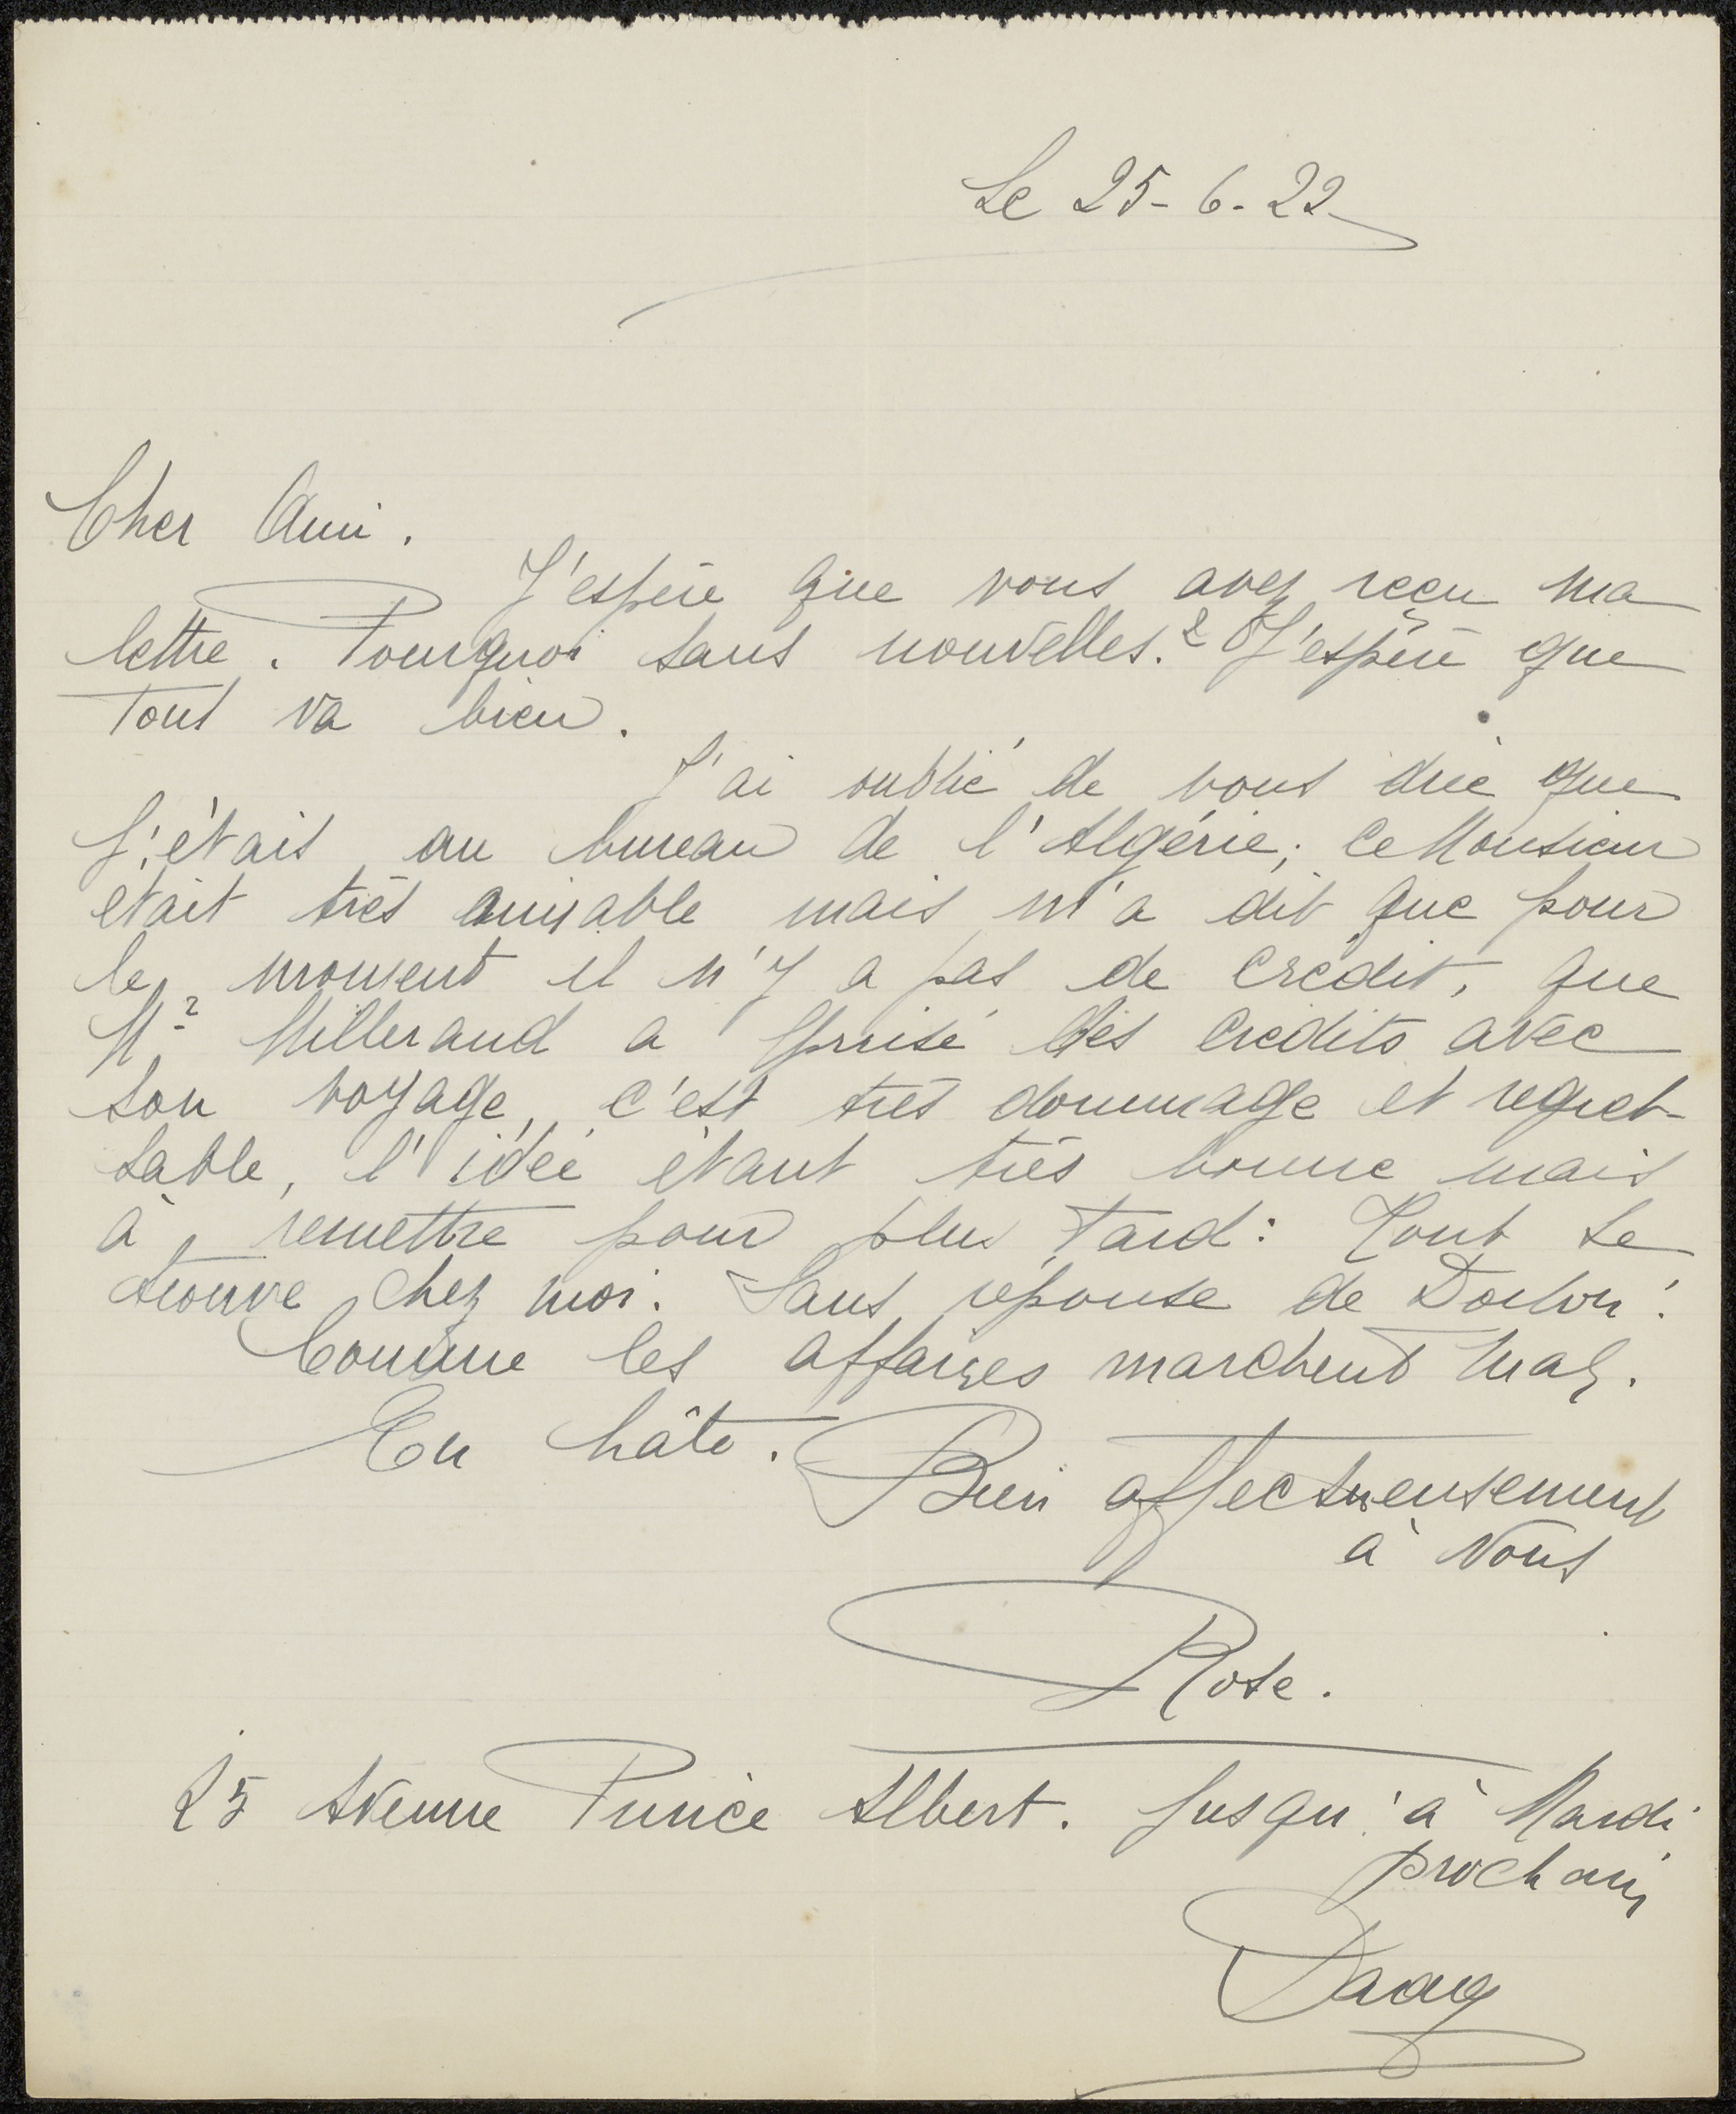 Le 25-6-22
Cher Ami.
J'espère que vous avez reçu ma
lettre. Pourquoi sans nouvelles.? J'espère que
tout va bien.
J'ai oublié de vous dire que
j'étais au bureau de l'Algérie; ce Monsieur
etait très aimable mais m'a dit que pour
le moment il n'y a pas de crédit, que
Mr Millerand a épuisé les crédits avec
son voyage, c'est très dommage et regret-
table, l'idée étant très bonne mais
à remettre pour plus tard: Tout se
trouve chez moi. Sans réponse de
Comme les affaires marchent mal.
En hâte.
Bien affectueusement
à Vous
Rose.
25 Avenue Prince Albert. Jusqu'à Mardi
prochain